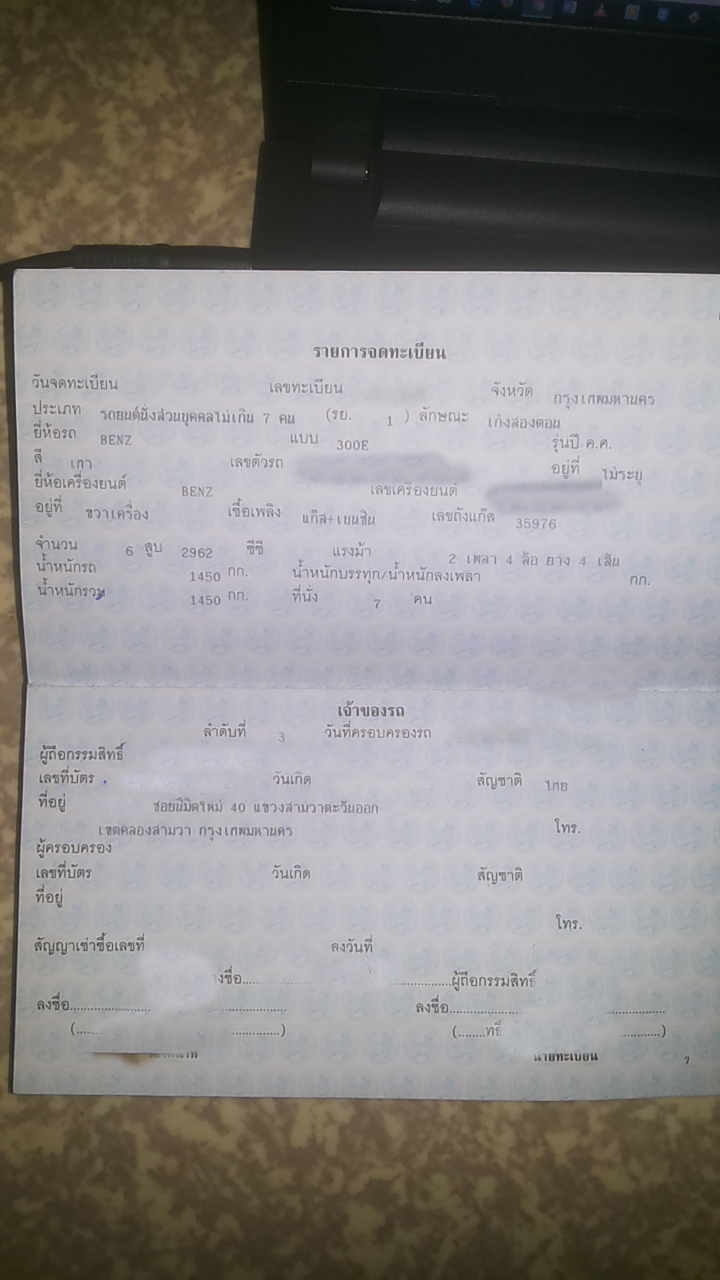 รายการจดทะเบียน
วันจดทะเบียน เลขทะเบียน จังหวัด กรุงเทพมหานคร
ประเภท รถยนต์นั่งส่วนบุคคลไม่เกิน 7 คน (รย. 1 ) ลักษณะ เก๋งสองตอน
ยี่ห้อรถ BENZ แบบ 300E รุ่นปี ค.ศ.
สี เทา เลขตัวรถ อยู่ที่ ไม่ระบุ
ยี่ห้อเครื่องยนต์ BENZ เลขเครื่องยนต์
อยู่ที่ ขวาเครื่อง เชื้อเพลิง แก๊ส+เบนซิน เลขถังแก๊ส 35976
จำนวน 6 สูบ 2962 ซีซี แรงม้า 2 เพลา 4 ล้อ ยาง 4 เส้น
น้ำหนักรถ 1450 กก. น้ำหนักบรรทุก/น้ำหนักลงเพลา กก.
น้ำหนักรวม 1450 กก. ที่นั่ง 7 คน
เจ้าของรถ
ลำดับที่ 3 วันที่ครอบครองรถ
ผู้ถือกรรมสิทธิ์
เลขที่บัตร วันเกิด สัญชาติ ไทย
ที่อยู่ ซอยนิมิตใหม่ 40 แขวงสามวาตะวันออก
เขตคลองสามวา กรุงเทพมหานคร โทร.
ผู้ครอบครอง
เลขที่บัตร วันเกิด สัญชาติ
ที่อยู่
โทร.
สัญญาเช่าซื้อเลขที่ ลงวันที่
งชื่อ.......... ..........ผู้ถือกรรมสิทธิ์
ลงชื่อ.......... .......... ลงชื่อ.......... ..........
(.......... ..........) (........ทธิ์ ..........)
นายทะเบียน 7